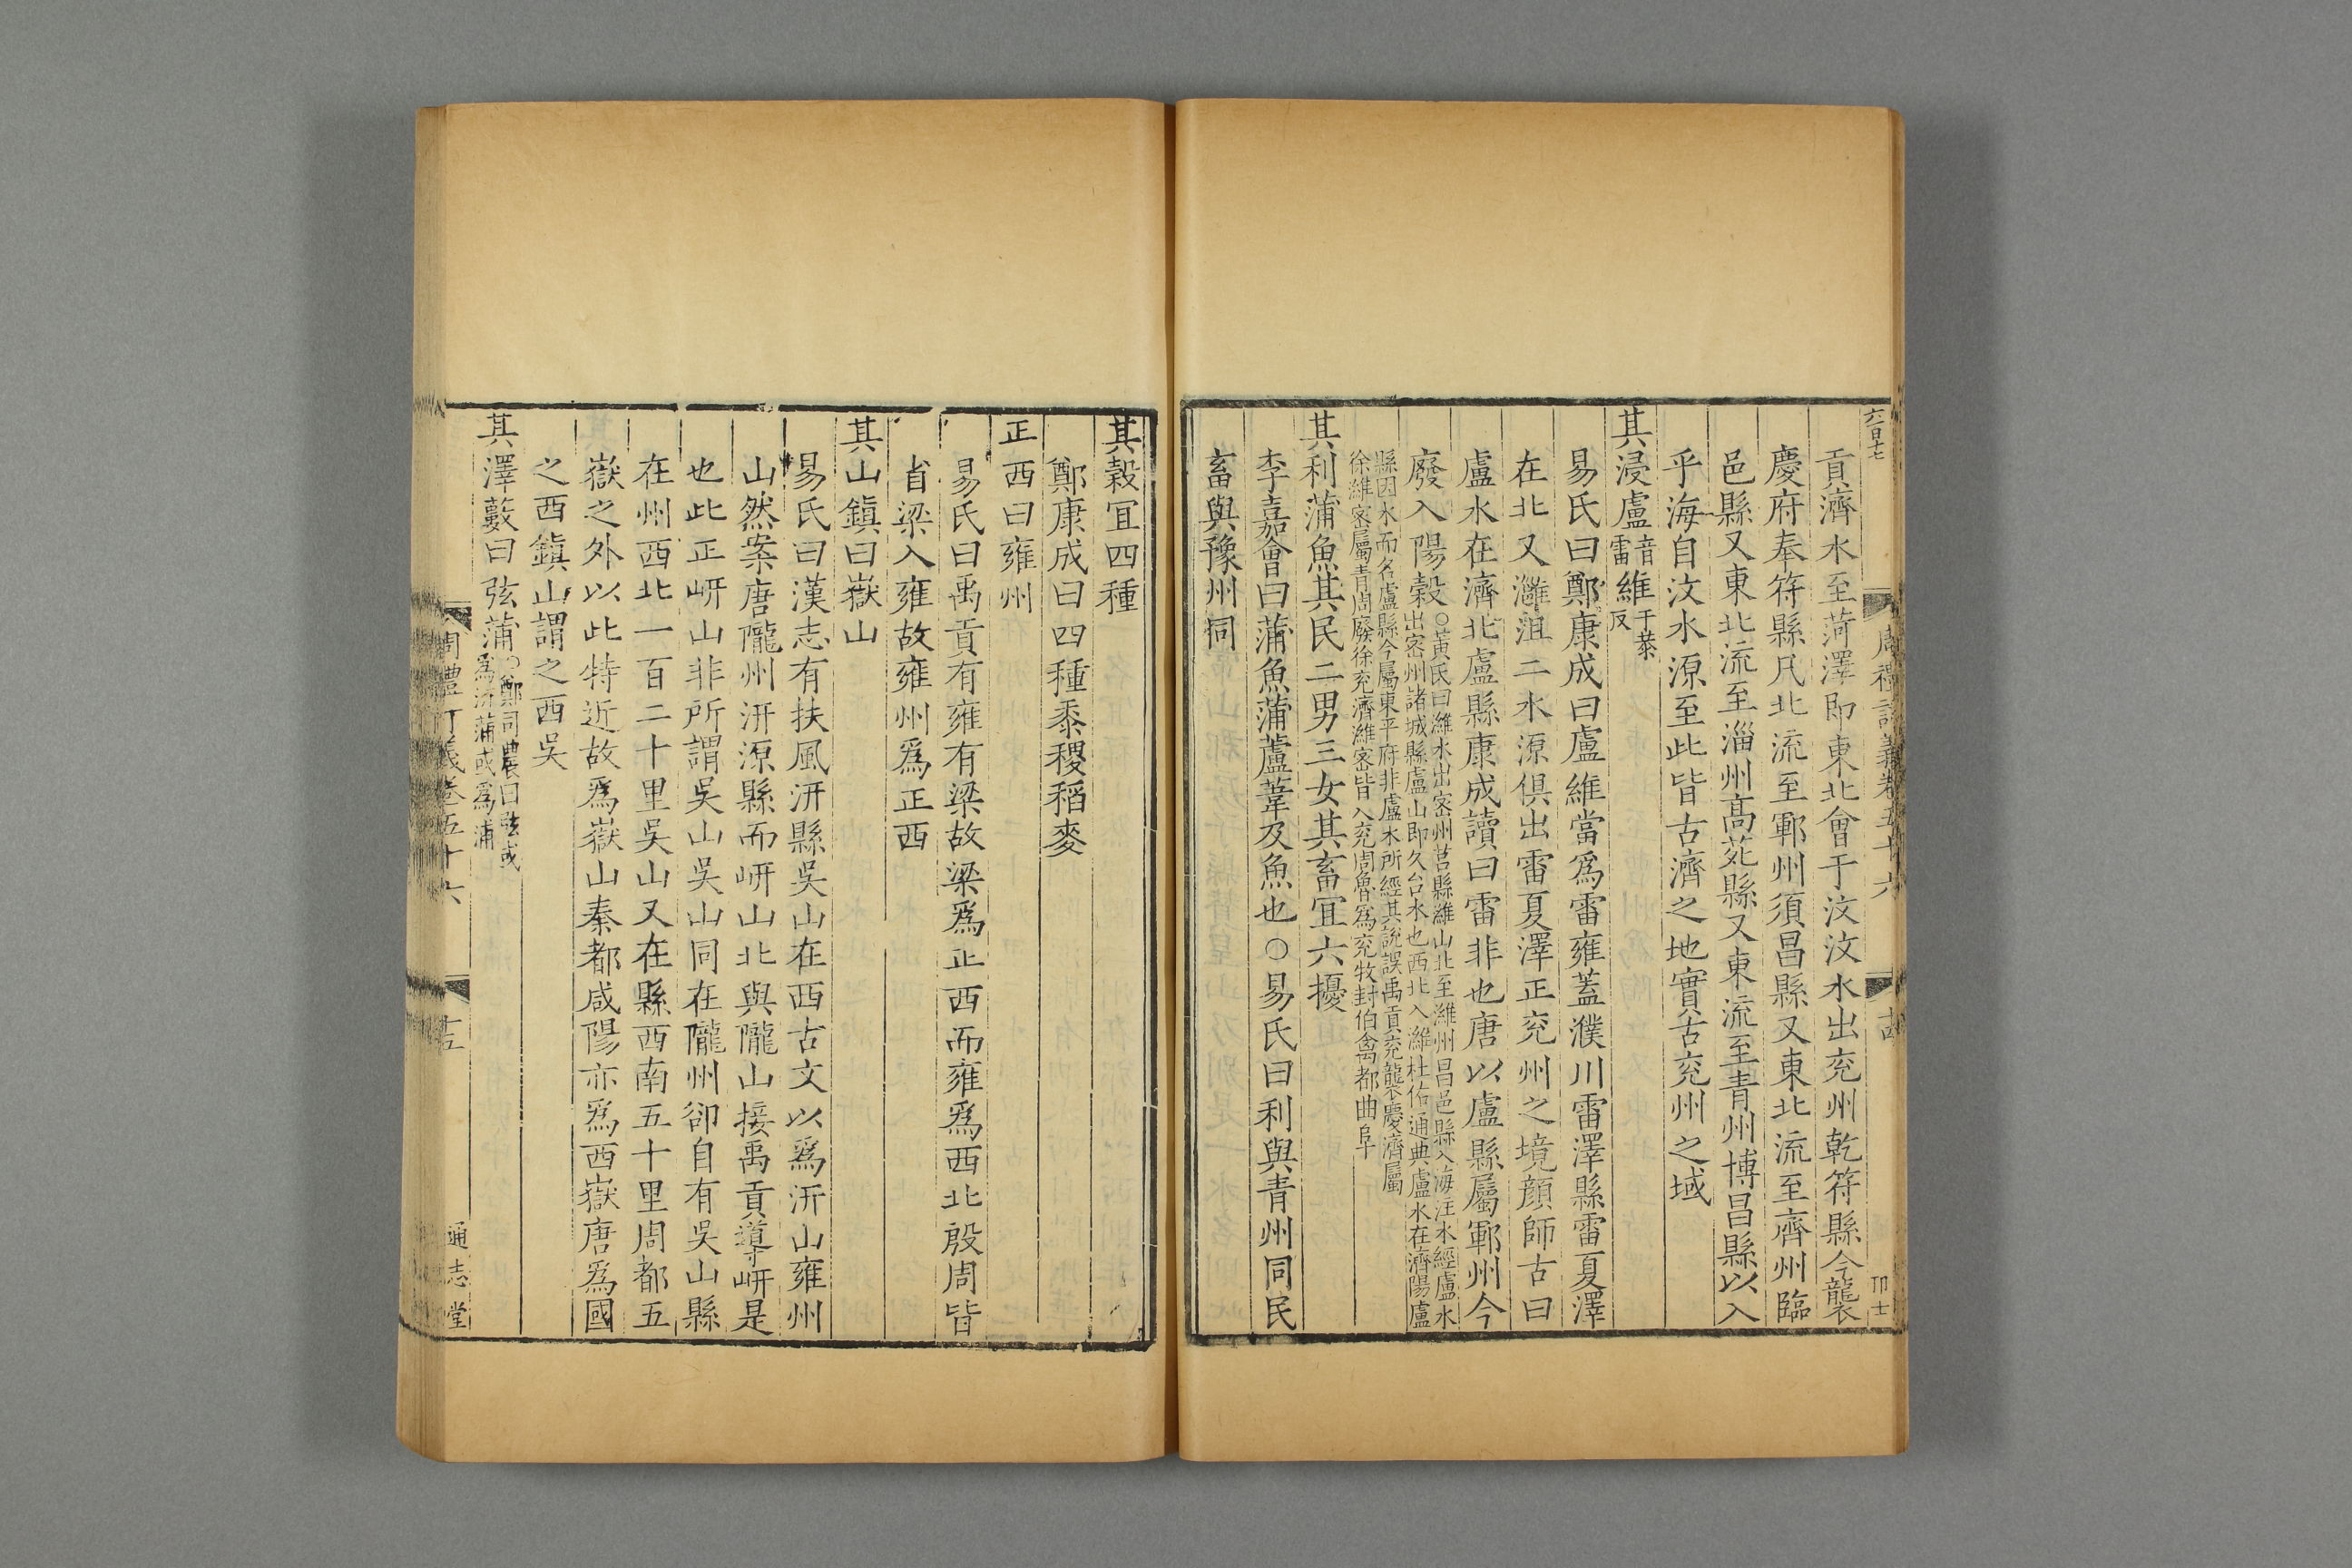 六百十七
周禮訂義卷五十六
十四
卬士
貢濟水至菏澤即東北會于汶汶水出兖州乾符縣今襲
慶府奉符縣凡北流至鄆州須昌縣又東北流至齊州臨
邑縣又東北流至淄州高苑縣又東流至青州博昌縣以入
乎海自汶水源至此皆古濟之地實古兖州之域
其浸盧音雷維于恭反
易氏曰鄭康成曰盧維當為雷雍蓋濮川雷澤縣雷夏澤
在北又灉沮二水源俱出雷夏澤正兖州之境顔師古曰
盧水在濟北盧縣康成讀曰雷非也唐以盧縣屬鄆州今
廢入陽榖○黃氏曰濰水出密州莒縣濰山北至濰州昌邑縣入海汪水經盧水
出密州諸城縣盧山即久台水也西北入濰杜佑通典盧水在濟陽盧
縣因水而名盧縣今屬東平府非盧水所經其說誤禹貢兖襲慶濟屬
徐維密屬青周廢徐兖濟濰密皆入兖周魯為兖牧封伯禽都曲阜
其利蒲魚其民二男三女其畜宜六擾
李嘉會曰蒲魚蒲蘆葦及魚也○易氏曰利與青州同民
畜與豫州同
其穀宜四種
鄭康成曰四種黍稷稻麥
正西曰雍州
易氏曰禹貢有雍有梁故梁為正西而雍為西北殷周皆
省梁入雍故雍州為正西
其山鎮曰嶽山
易氏曰漢志有扶風汧縣吳山在西古文以為汧山雍州
山然案唐隴州汧源縣而岍山北與隴山接禹貢導岍是
也此正岍山非所謂吳山吳山同在隴州卻自有吳山縣
在州西北一百二十里吳山又在縣西南五十里周都五
嶽之外以此特近故為嶽山秦都咸陽亦為西嶽唐為國
之西鎮山謂之西吳
其澤藪曰弦蒲○鄭司農曰弦或
為汧蒲或為浦
周禮訂義卷五十六
十五
通志堂